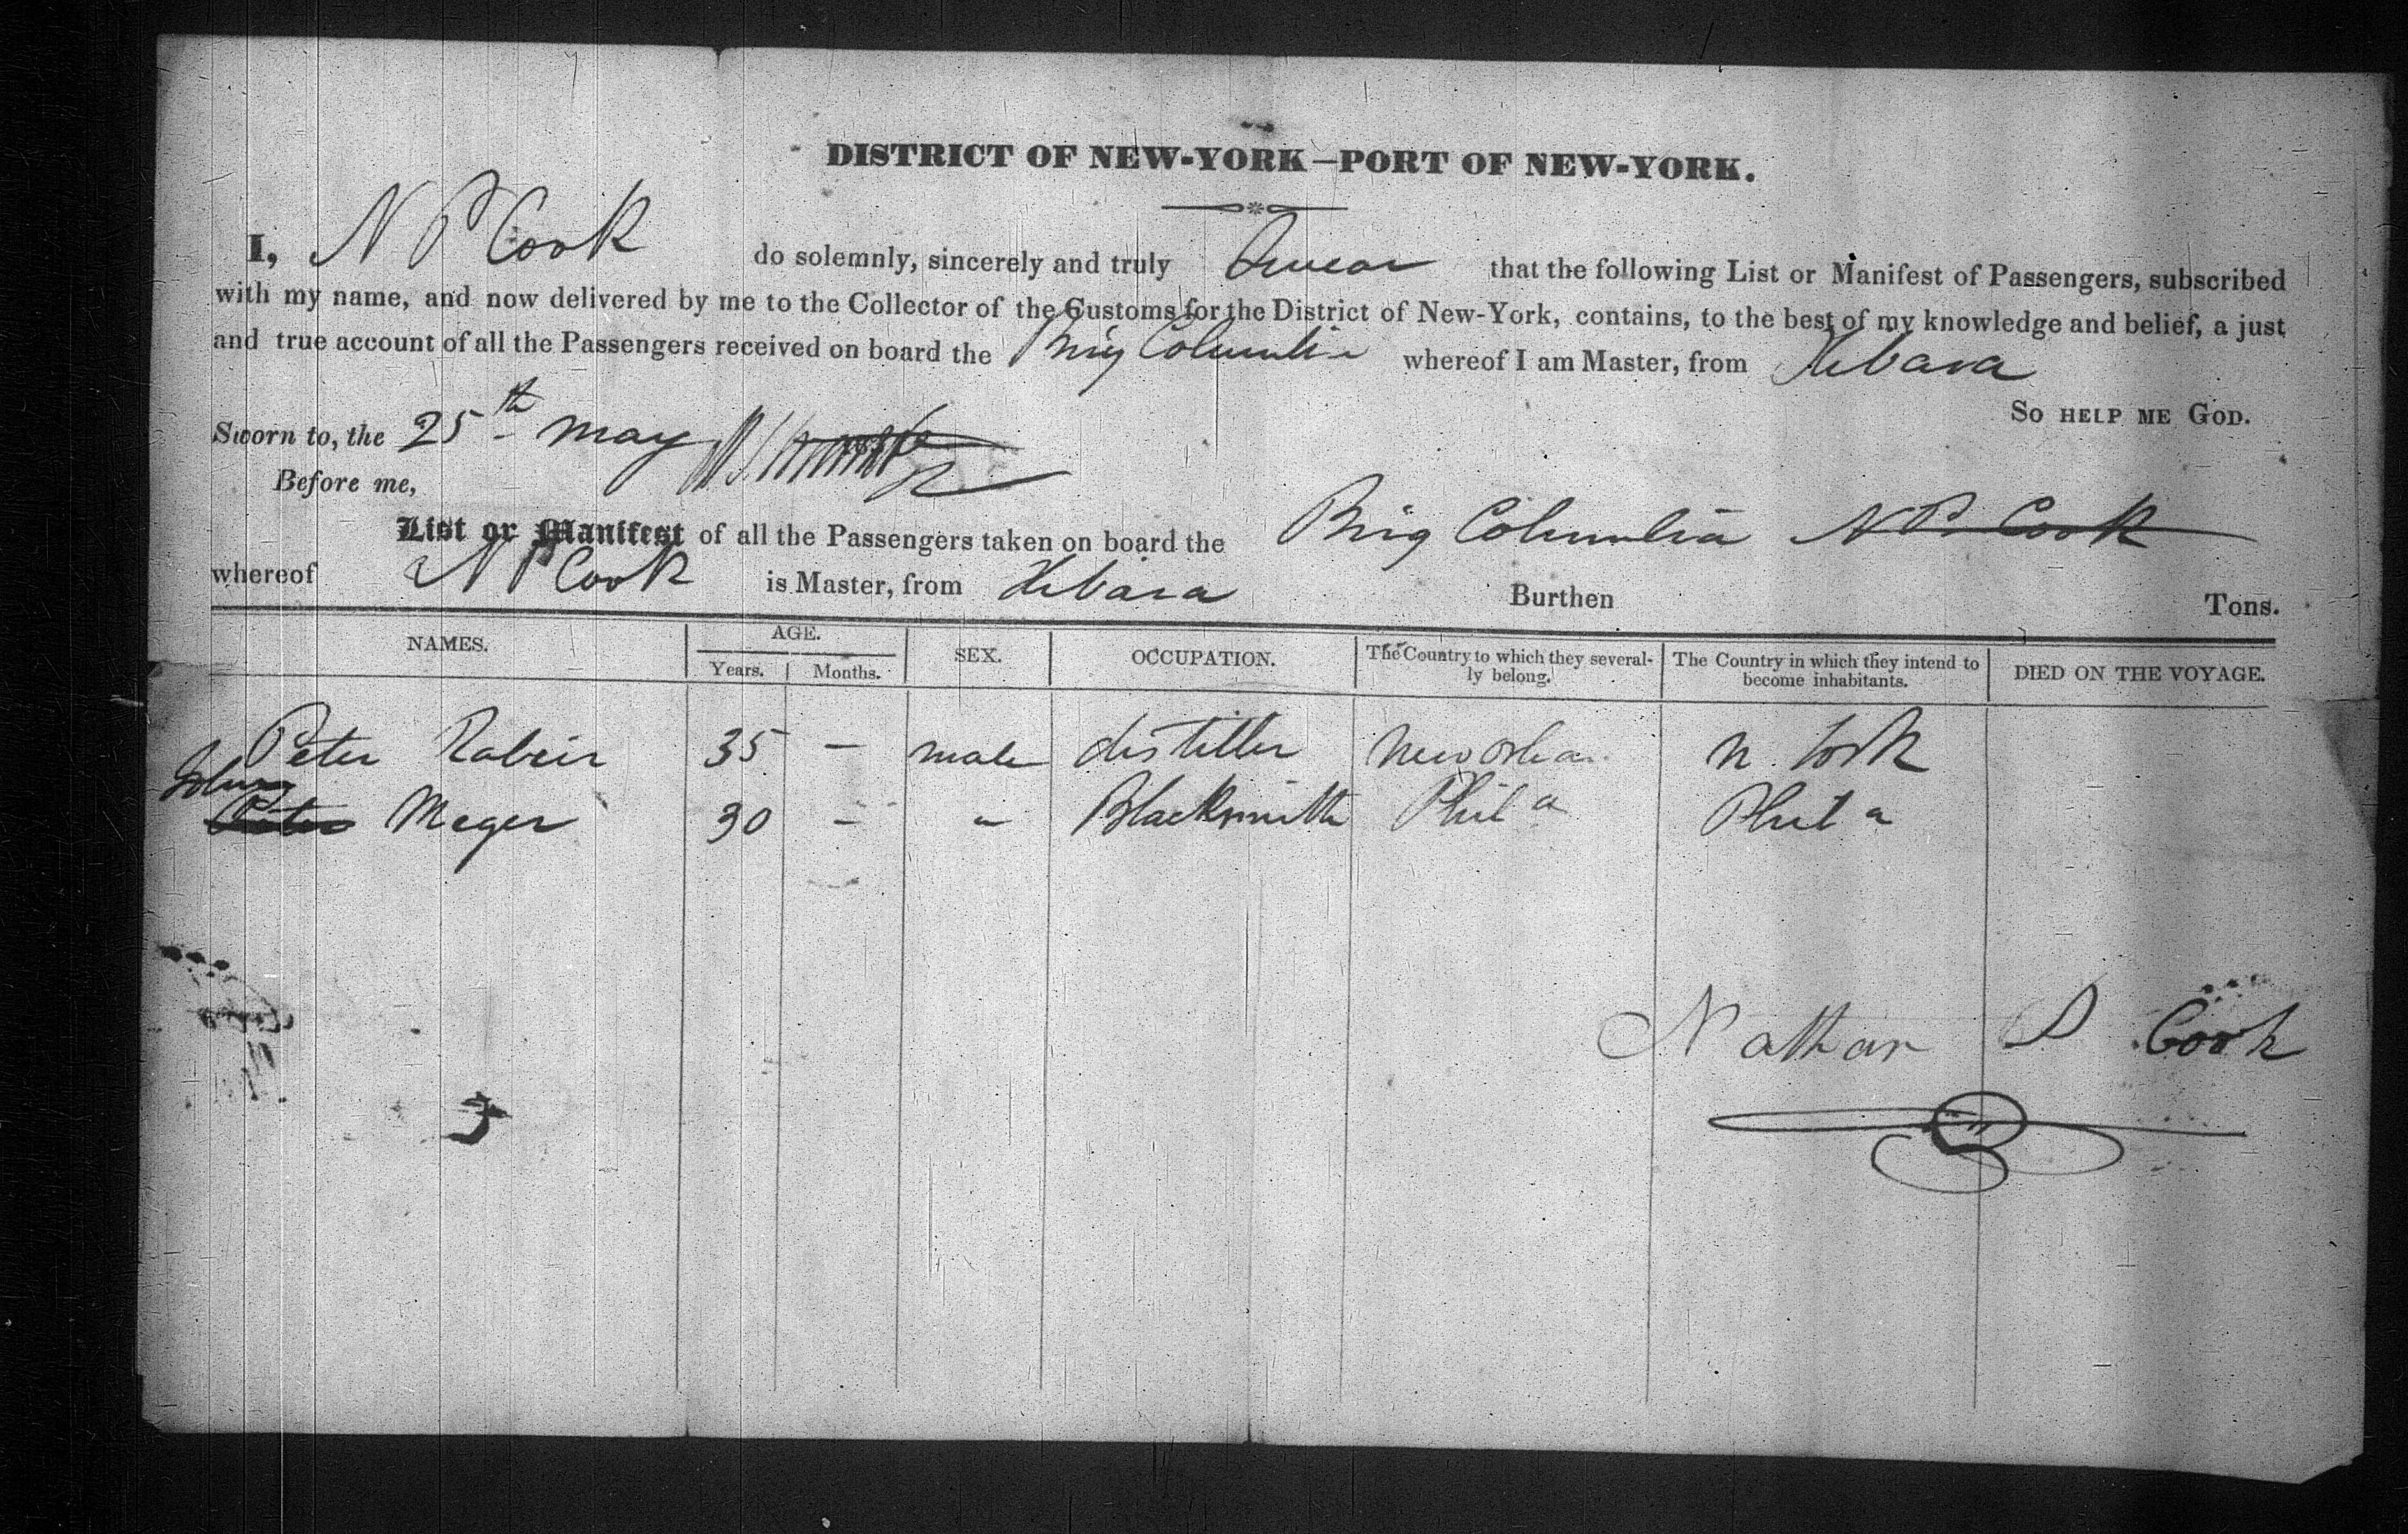 DISTRICT OF NEW-YORK—PORT OF NEW-YORK.
I, N P Cook do solemnly, sincerely and truly Swear that the following List or Manifest of Passengers, subscribed
with my name, and now delivered by me to the Collector of the Customs for the District of New-York, contains, to the best of my knowledge and belief, a just
and true account of all the Passengers received on board the Brig Columbia whereof I am Master, from Xibara
So HELP ME GOD.
Sworn to, the 25th may
Before me,
List or Manifest of all the Passengers taken on board the Brig Columbia N P Cook
whereof N P Cook is Master, from Xibara Burthen Tons.
NAMES. AGE. SEX. OCCUPATION. The Country to which they several-ly belong. The Country in which they intend to become inhabitants. DIED ON THE VOYAGE.
Years. Months.
Peter 35 – male distiller New Orlea N. York
Meger 30 – " Blacksmith Phila Phila
Nathan P Cook